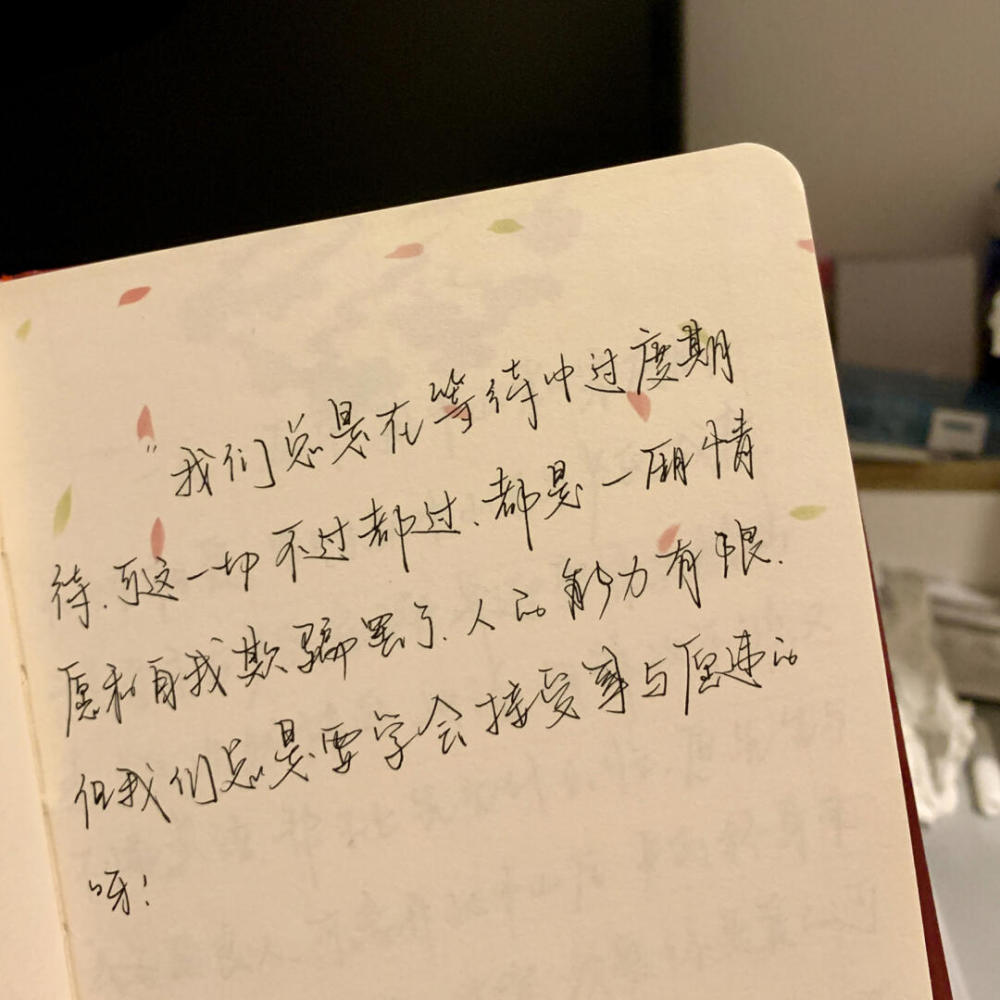 "我们总是在等待中过度期
待.可这一切不过都过、都是一厢情
愿和自我欺骗罢了.人的能力有限.
但我们总是要学会接受事与愿违的
呀!